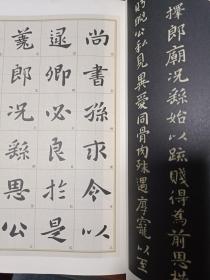 擇郎廟況繇始以疏賤得為前恩橫
睨公私見異愛同骨肉殊遇厚寵以至
尚書孫求令以
逮卿必良於是
蕘郎況繇恩公